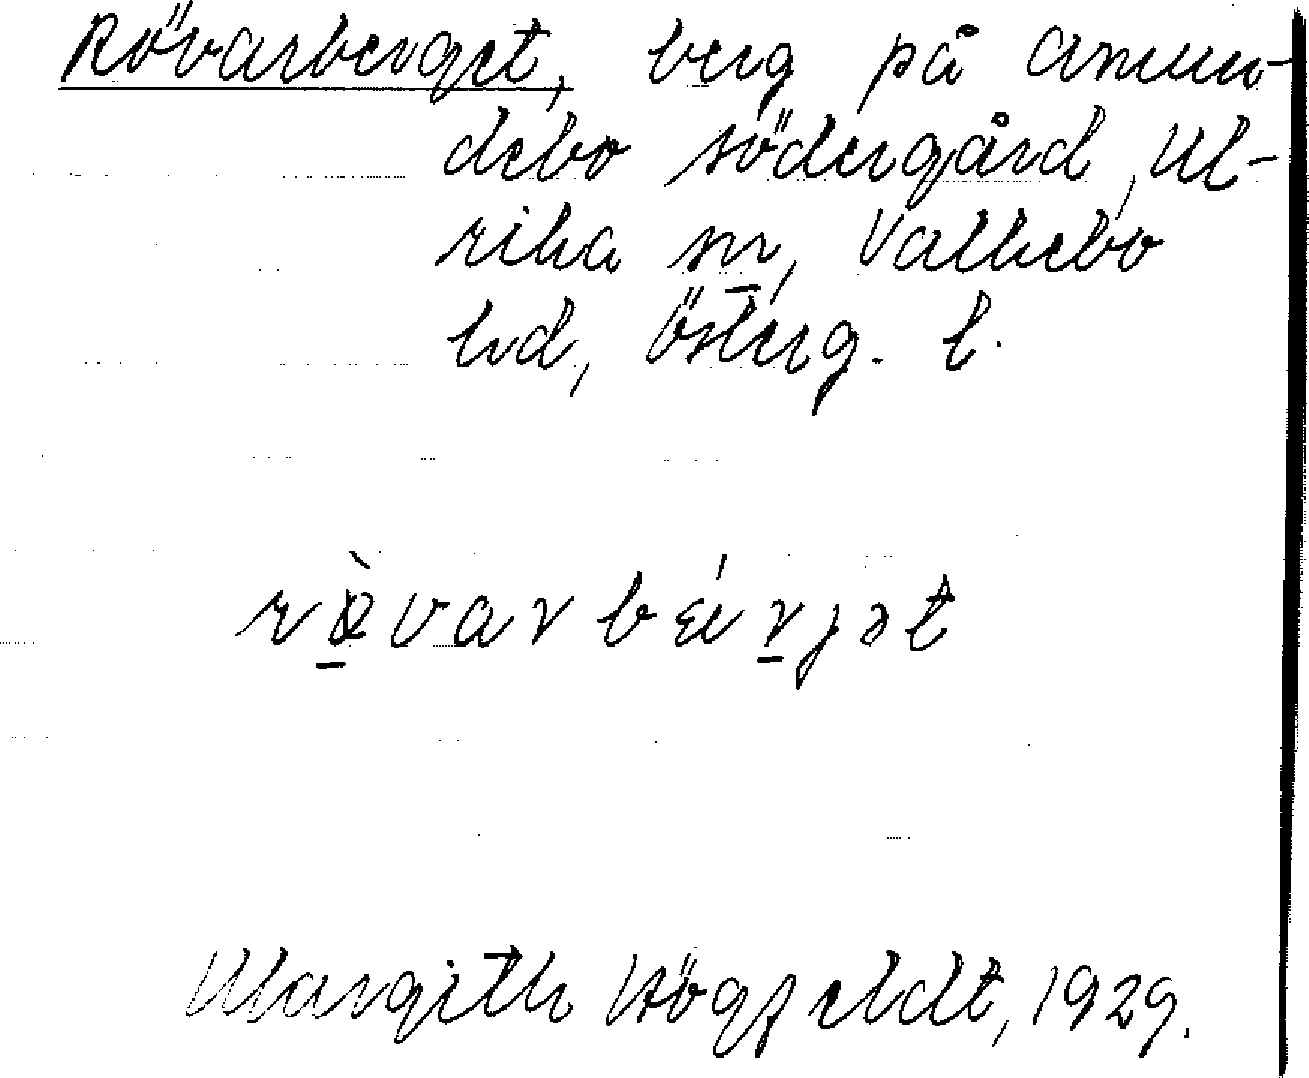 Rövarberget, berg på Amun-
debo södergård, Ul-
rika sn, Valkebo
hd, Österg. l.
rø̀varbǽrjət
Margith Högfeldt, 1929.